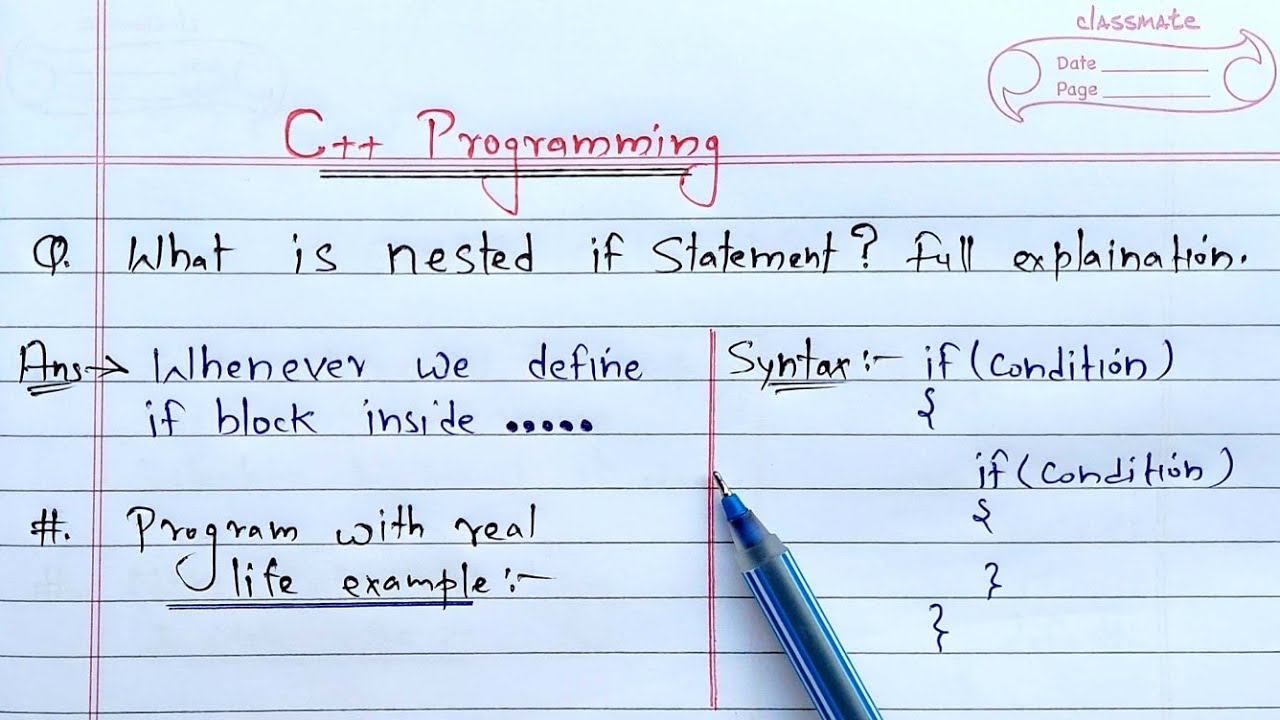 classmate
Date
Page
C++ Programming
Q. What is nested if statement? full explaination.
Ans→ Whenever we define
if block inside .....
#. Program with real
life example:-
Syntax:- if (condition)
{
if (condition)
{
}
}